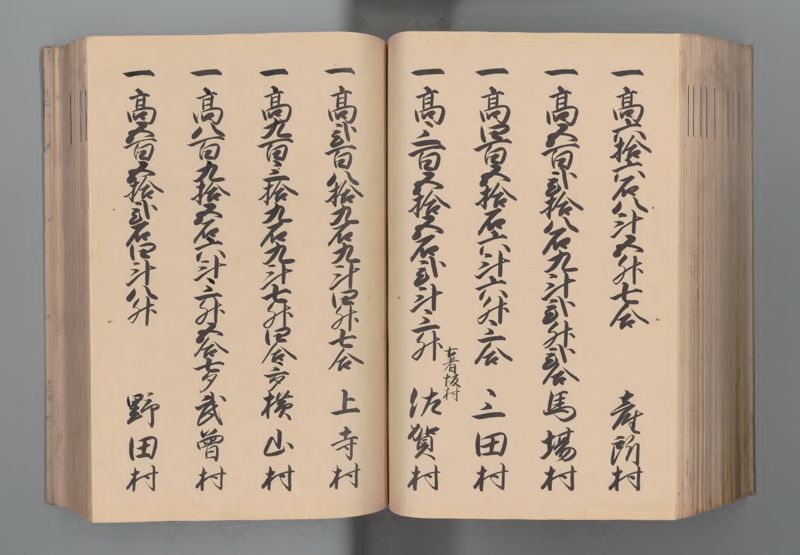 一高六拾六石八斗五升七合 産所村
一高五百弐拾八石九斗弐升弐合 馬場村
一高四百五拾石六斗六升三合 三田村
一高三百五拾五石弐斗三升 佐賀村
古者坂村
一高弐百八拾九石九斗四升七合 上寺村
一高九百三拾九石九斗七升四合 横山村
一高八百九拾五石六斗三升五合七夕 武曽村
一高五百五拾弐石四斗八升 野田村